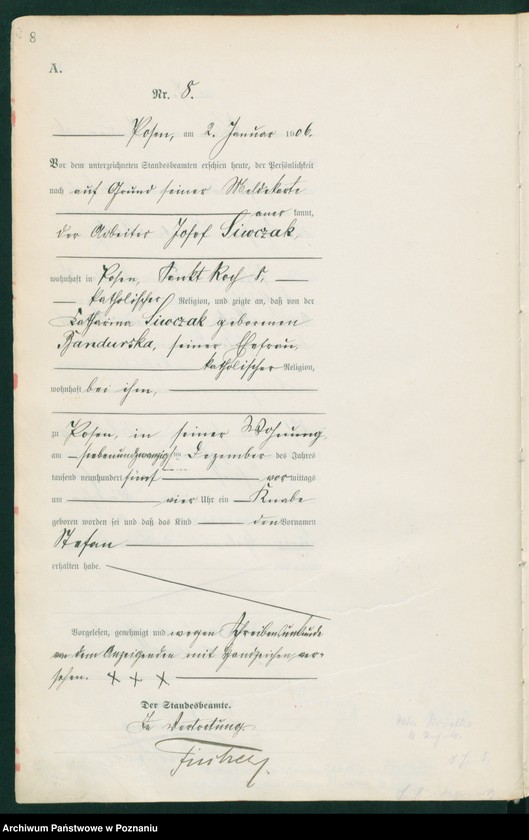 8
A.
Nr. 8.
Posen, am 2. Januar 1906.
Vor dem unterzeichneten Standesbeamten erschien heute, der Persönlichkeit
nach auf Grund seiner Meldekarte
anerkannt,
der Arbeiter Josef Siwczak,
wohnhaft in Posen, Sankt Roch 8,
katholischer Religion, und zeigte an, daß von der
Katharina Siwczak geborenen
Bandurska, seiner Ehefrau,
katholischer Religion,
wohnhaft bei ihm,
zu Posen, in seiner Wohnung,
am siebenundzwanzigsten Dezember des Jahres
tausend neunhundert fünf vormittags
um vier Uhr ein Knabe
geboren worden sei und daß das Kind den Vornamen
Stefan
erhalten habe.
Vorgelesen, genehmigt und wegen Schreibensunkunde
von dem Anzeigenden mit Handzeichen ver-
sehen. + + +
Der Standesbeamte.
In Vertretung.
Archiwum Państwowe w Poznaniu